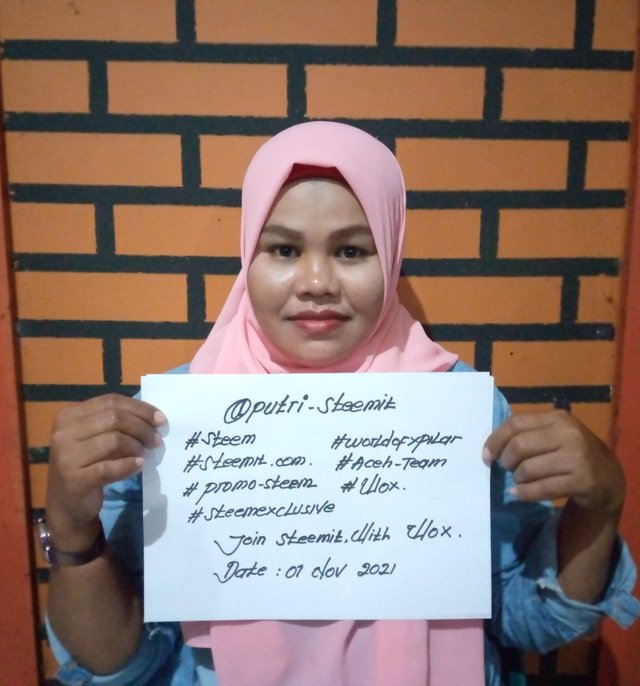 @putri-steemit
#steem #worldofxpilar
#steemit.com. #Aceh-Team
#promo-steem #Wox.
#steemexclusive
Join steemit. With Wox.
Date : 01 Nov 2021